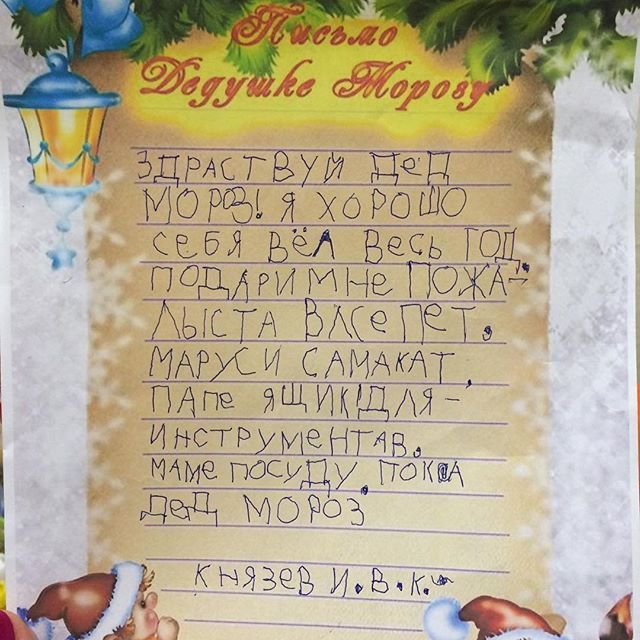 Письмо
Дедушке Морозу
ЗДРАСТВУЙ ДЕД
МОРОЗ! Я ХОРОШО
СЕБЯ ВЁЛ ВЕСЬ ГОД,
ПОДАРИ МНЕ ПОЖА-
ЛЫСТА ВЛСЕПЕТ,
МАРУСИ САМАКАТ,
ПАПЕ ЯЩИК ДЛЯ-
ИНСТРУМЕНТАВ,
МАМЕ ПОСУДУ, ПОКА
ДЕД МОРОЗ
КНЯЗЕВ И.В.К.